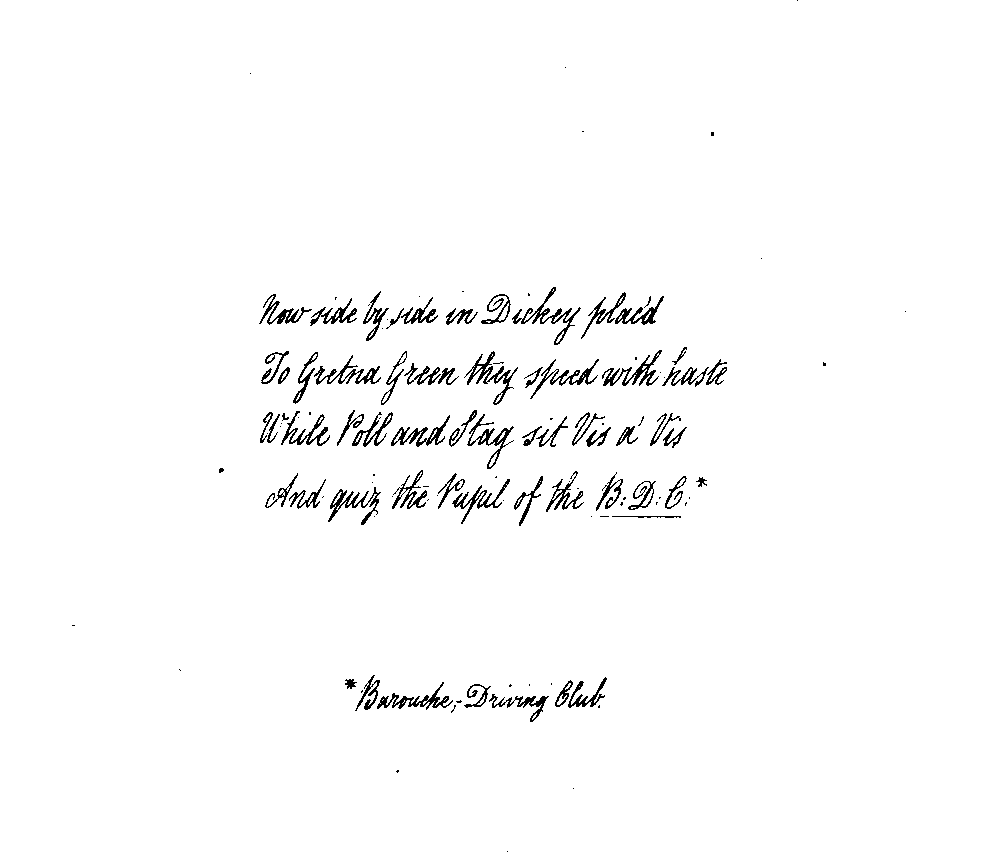 Now side by side in Dickey plac'd
To Gretna Green they speed with haste
While Poll and Stag sit Vis a' Vis
And quiz the Pupil of the B:D:C:*
*Barouche,-Driving Club.